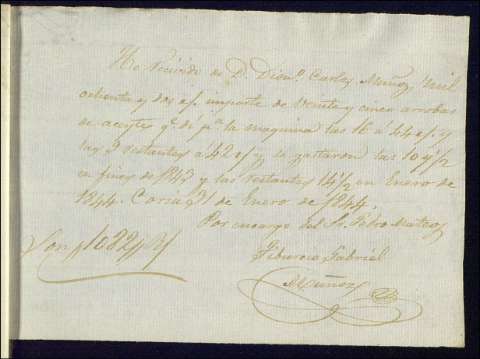 He recivido de D. Dion.º Carlos Muñoz, mil
ochenta y dos r.s importe de veinte y cinco arrobas
de aceyte q.e di p.a la maquina las 16 a 44 r.s y
las 9 restantes a 42 r.s y se gastaron las 10 y 1/2
en fines de 1843 y las restantes 14 1/2 en Enero de
1844. Coria y 31 de Enero de 1844.
Por encargo del S.r Pedro Mateos
Tiburcio Gabriel
Muñoz
Son 1082 r.s